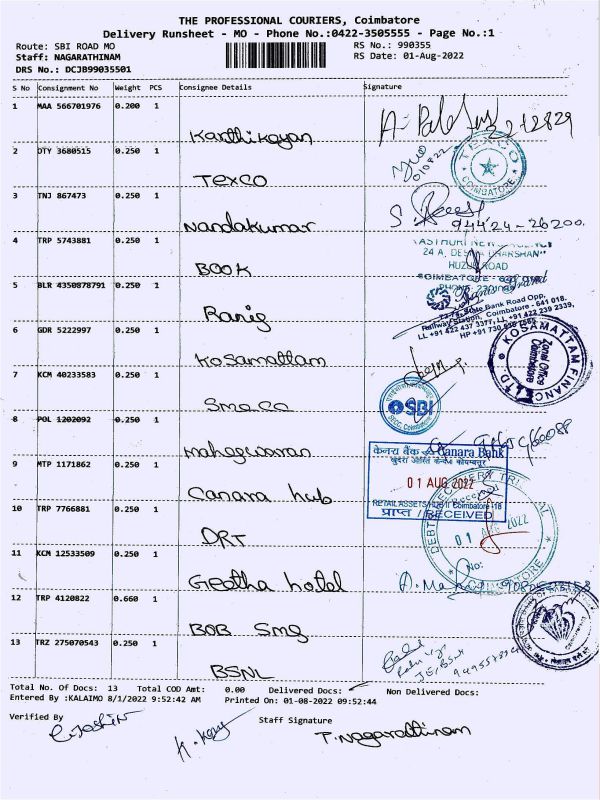 THE PROFESSIONAL COURIERS, Coimbatore
Delivery Runsheet - MO - Phone No.:0422-3505555 - Page No.:1
Route: SBI ROAD MO
RS No.: 990355
Staff: NAGARATHINAM
RS Date: 01-Aug-2022
DRS No.: DCJB99035501
S No Consignment No Weight PCS Consignee Details Signature
1 MAA 566701976 0.200 1
Karthikeyan
2 DTY 3680515 0.250 1
TEXCO
TEXCO
COIMBATORE
3 TNJ 867473 0.250 1
Nandakumar
94424-26200
4 TRP 5743881 0.250 1
BOOK
HUZUR ROAD
5 BLR 4350878791 0.250 1
Ranig
State Bank Road Opp,
Railway Station, Coimbatore - 641 018.
LL +91 422 437 3377, LL +91 422 239 2339,
6 GDR 5222997 0.250 1
Kosamattam
KOSAMATTAM FINANCE LTD
Zonal Office
Coimbatore
7 KCM 40233583 0.250 1
Smecc
SBI
8 POL 1202092 0.250 1
Maheswaran
9 MTP 1171862 0.250 1
Canara hub
केनरा बैंक Canara Bank
01 AUG 2022
RETAIL ASSETS HUB II Coimbatore -18
प्राप्त / RECEIVED
10 TRP 7766881 0.250 1
DRT
DEBTS RECOVERY TRIBUNAL
COIMBATORE
11 KCM 12533509 0.250 1
Geetha hotel
12 TRP 4120822 0.660 1
BOB Smg
13 TRZ 275070543 0.250 1
BSNL
JE/BSNL
Total No. Of Docs: 13 Total COD Amt: 0.00 Delivered Docs: Non Delivered Docs:
Entered By :KALAIMO 8/1/2022 9:52:42 AM Printed On: 01-08-2022 09:52:44
Verified By Staff Signature
T. Nagarathinam